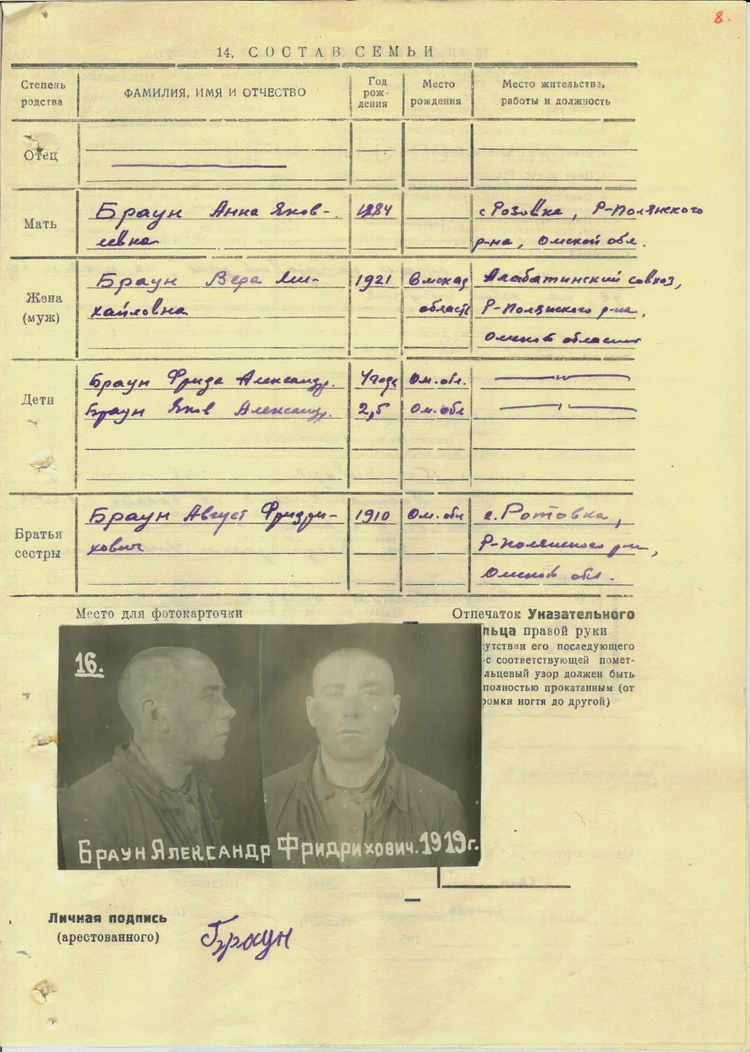 8.
14. СОСТАВ СЕМЬИ
Степень родства
ФАМИЛИЯ, ИМЯ И ОТЧЕСТВО
Год рож-дения
Место рождения
Место жительства, работы и должность
Отец
Мать
Браун Анна Яков-
левна
1884
с Розовка, Р-Полянского
р-на, Омской обл.
Жена
(муж)
Браун Вера Ми-
хайловна
1921
Омская
область
Алабатинский совхоз,
Р-Полянского р-на,
Омской области
Дети
Браун Фрида Александр.
4 года
Ом. обл.
Браун Яков Александр.
2,5
Ом. обл
Братья
сестры
Браун Август Фридри-
хович
1910
Ом. обл
с.
Р-Полянского р-н,
Омской обл.
Место для фотокарточки
Отпечаток Указательного
льца правой руки
сутствии его последующего
с соответствующей помет-
льцевый узор должен быть
полностью прокатанным (от
ромки ногтя до другой)
16.
БРАУН АЛЕКСАНДР ФРИДРИХОВИЧ. 1919 г.
Личная подпись
(арестованного)
Браун